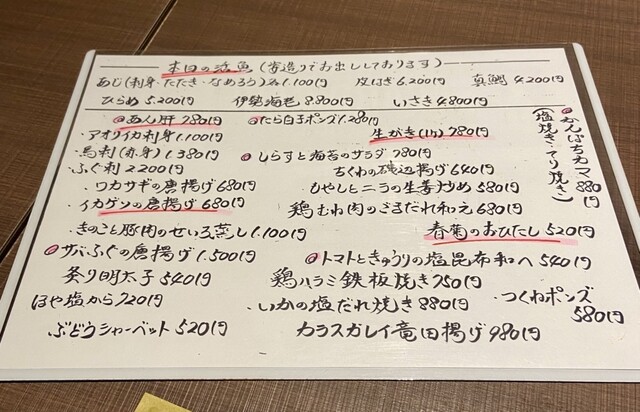 本日の活魚(姿造りでお出ししております)
あじ(刺身・たたき・なめろう)各1.100円 皮はぎ6.200円 真鯛4.200円
ひらめ5.200円 伊勢海老8.800円 いさき4.800円
あん肝780円
アオリイカ刺身1.100円
・馬刺(赤身)1.380円
・ふぐ刺2.200
・ワカサギの唐揚げ680円
・イカゲソの唐揚げ680円
・きのこと豚肉のせいろ蒸し1.100円
サバふぐの唐揚げ1.500円
炙り明太子540円
ほや塩から720円
ぶどうシャーベット520円
たら白子ポンズ1.280円
生がき(1ヶ)780円
しらすと海苔のサラダ780円
ちくわの磯辺揚げ640円
・もやしとニラの生姜炒め580円
鶏むね肉のごまだれ和え680円
春菊のおひたし520円
トマトときゅうりの塩昆布和へ540円
鶏ハラミ鉄板焼き750円
・いかの塩だれ焼き880円
・つくねポンズ
580円
カラスガレイ竜田揚げ980円
かんぱちカマ880円
(塩焼き・てり焼き)